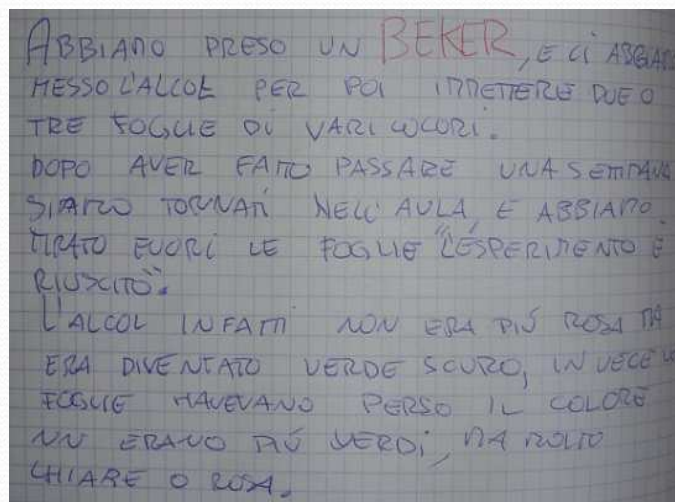 ABBIAMO PRESO UN BEKER, E CI ABBIAMO
MESSO L'ALCOL PER POI IMMETTERE DUE O
TRE FOGLIE DI VARI COLORI.
DOPO AVER FATTO PASSARE UNA SETTIMANA
SIAMO TORNATI NELL'AULA, E ABBIAMO
TIRATO FUORI LE FOGLIE "L'ESPERIMENTO È
RIUSCITO".
L'ALCOL INFATTI NON ERA PIÙ ROSA MA
ERA DIVENTATO VERDE SCURO, INVECE LE
FOGLIE HAVEVANO PERSO IL COLORE
NN ERANO PIÙ VERDI, MA MOLTO
CHIARE O ROSA.